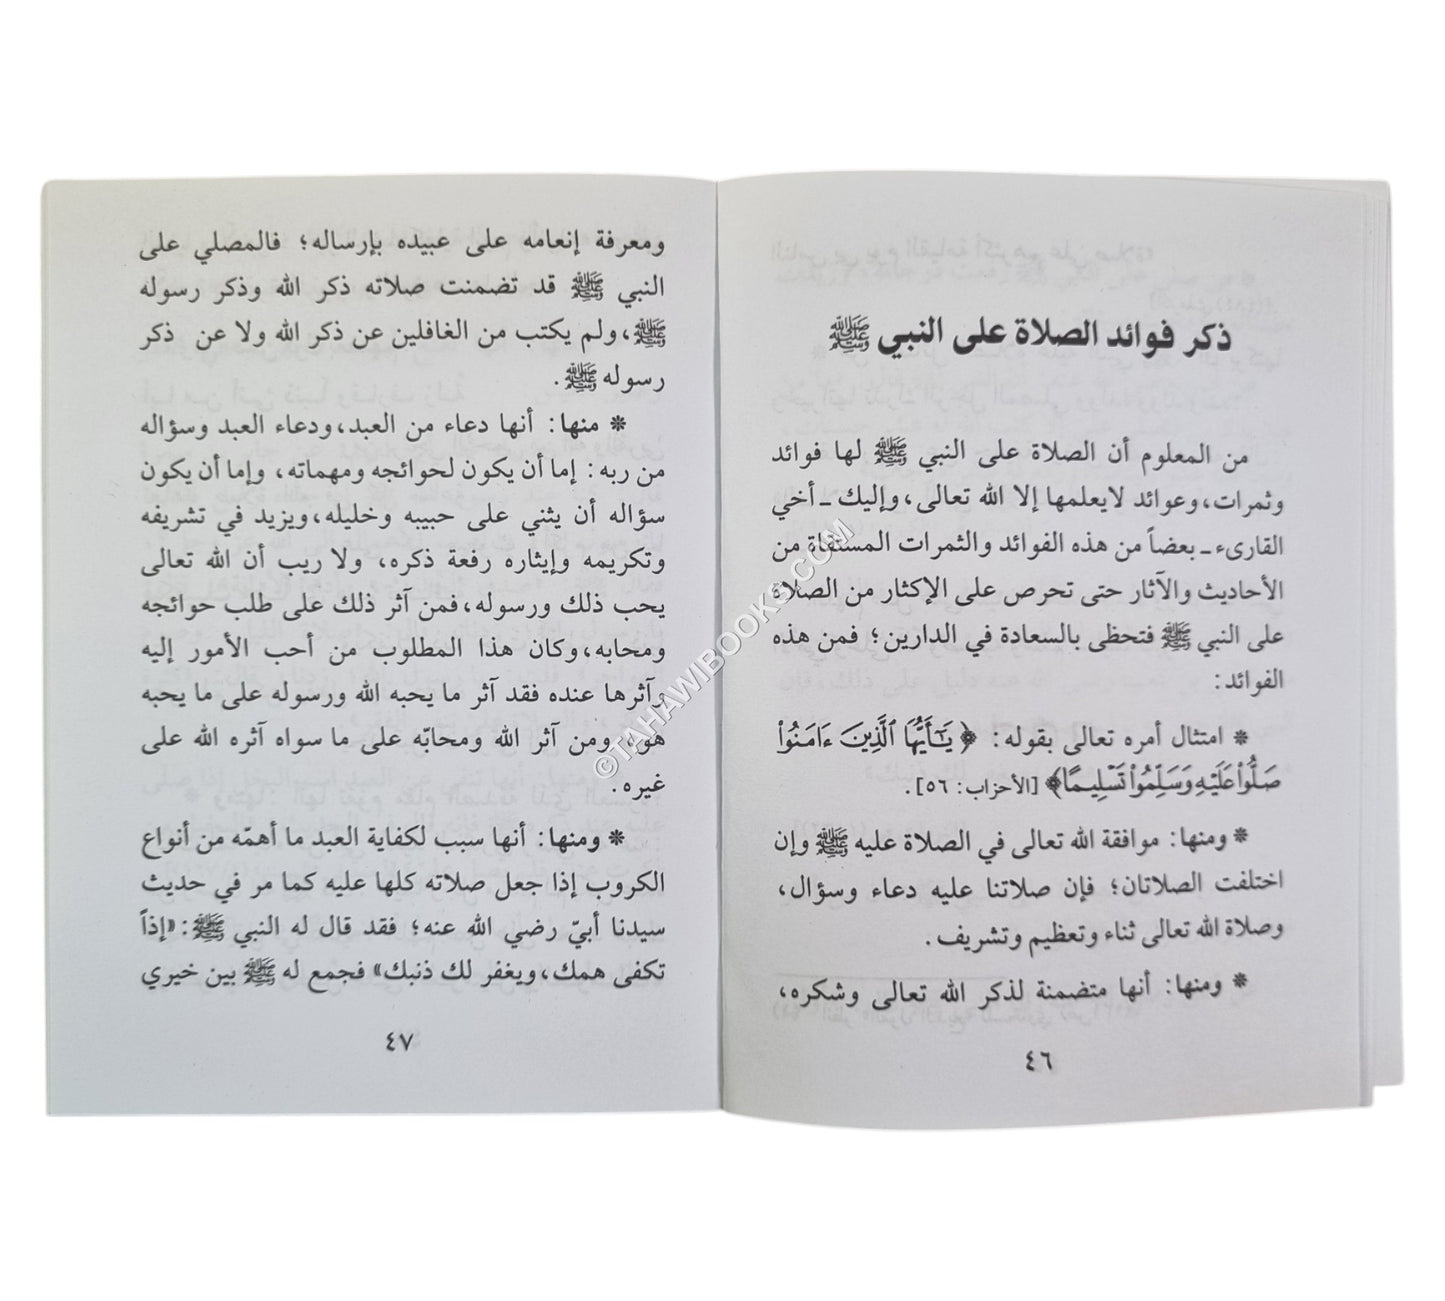 ذكر فوائد الصلاة على النبي ﷺ
من المعلوم أن الصلاة على النبي ﷺ لها فوائد
وثمرات، وعوائد لايعلمها إلا الله تعالى، وإليك ـ أخي
القارىء ـ بعضاً من هذه الفوائد والثمرات المستقاة من
الأحاديث والآثار حتى تحرص على الإكثار من الصلاة
على النبي ﷺ فتحظى بالسعادة في الدارين؛ فمن هذه
الفوائد:
* امتثال أمره تعالى بقوله: ﴿يَٰٓأَيُّهَا ٱلَّذِينَ ءَامَنُوا۟
صَلُّوا۟ عَلَيْهِ وَسَلِّمُوا۟ تَسْلِيمًا﴾ [الأحزاب: ٥٦].
* ومنها: موافقة الله تعالى في الصلاة عليه ﷺ وإن
اختلفت الصلاتان؛ فإن صلاتنا عليه دعاء وسؤال،
وصلاة الله تعالى ثناء وتعظيم وتشريف.
* ومنها: أنها متضمنة لذكر الله تعالى وشكره،
٤٦
ومعرفة إنعامه على عبيده بإرساله؛ فالمصلي على
النبي ﷺ قد تضمنت صلاته ذكر الله وذكر رسوله
ﷺ، ولم يكتب من الغافلين عن ذكر الله ولا عن ذكر
رسوله ﷺ.
* منها: أنها دعاء من العبد، ودعاء العبد وسؤاله
من ربه: إما أن يكون لحوائجه ومهماته، وإما أن يكون
سؤاله أن يثني على حبيبه وخليله، ويزيد في تشريفه
وتكريمه وإيثاره رفعة ذكره، ولا ريب أن الله تعالى
يحب ذلك ورسوله، فمن آثر ذلك على طلب حوائجه
ومحابه، وكان هذا المطلوب من أحب الأمور إليه
وآثرها عنده فقد آثر ما يحبه الله ورسوله على ما يحبه
هو، ومن آثر الله ومحابّه على ما سواه آثره الله على
غيره.
* ومنها: أنها سبب لكفاية العبد ما أهمّه من أنواع
الكروب إذا جعل صلاته كلها عليه كما مر في حديث
سيدنا أبيّ رضي الله عنه؛ فقد قال له النبي ﷺ: «إذاً
تكفى همك، ويغفر لك ذنبك» فجمع له ﷺ بين خيري
٤٧
©TAHAWIBOOKS.COM